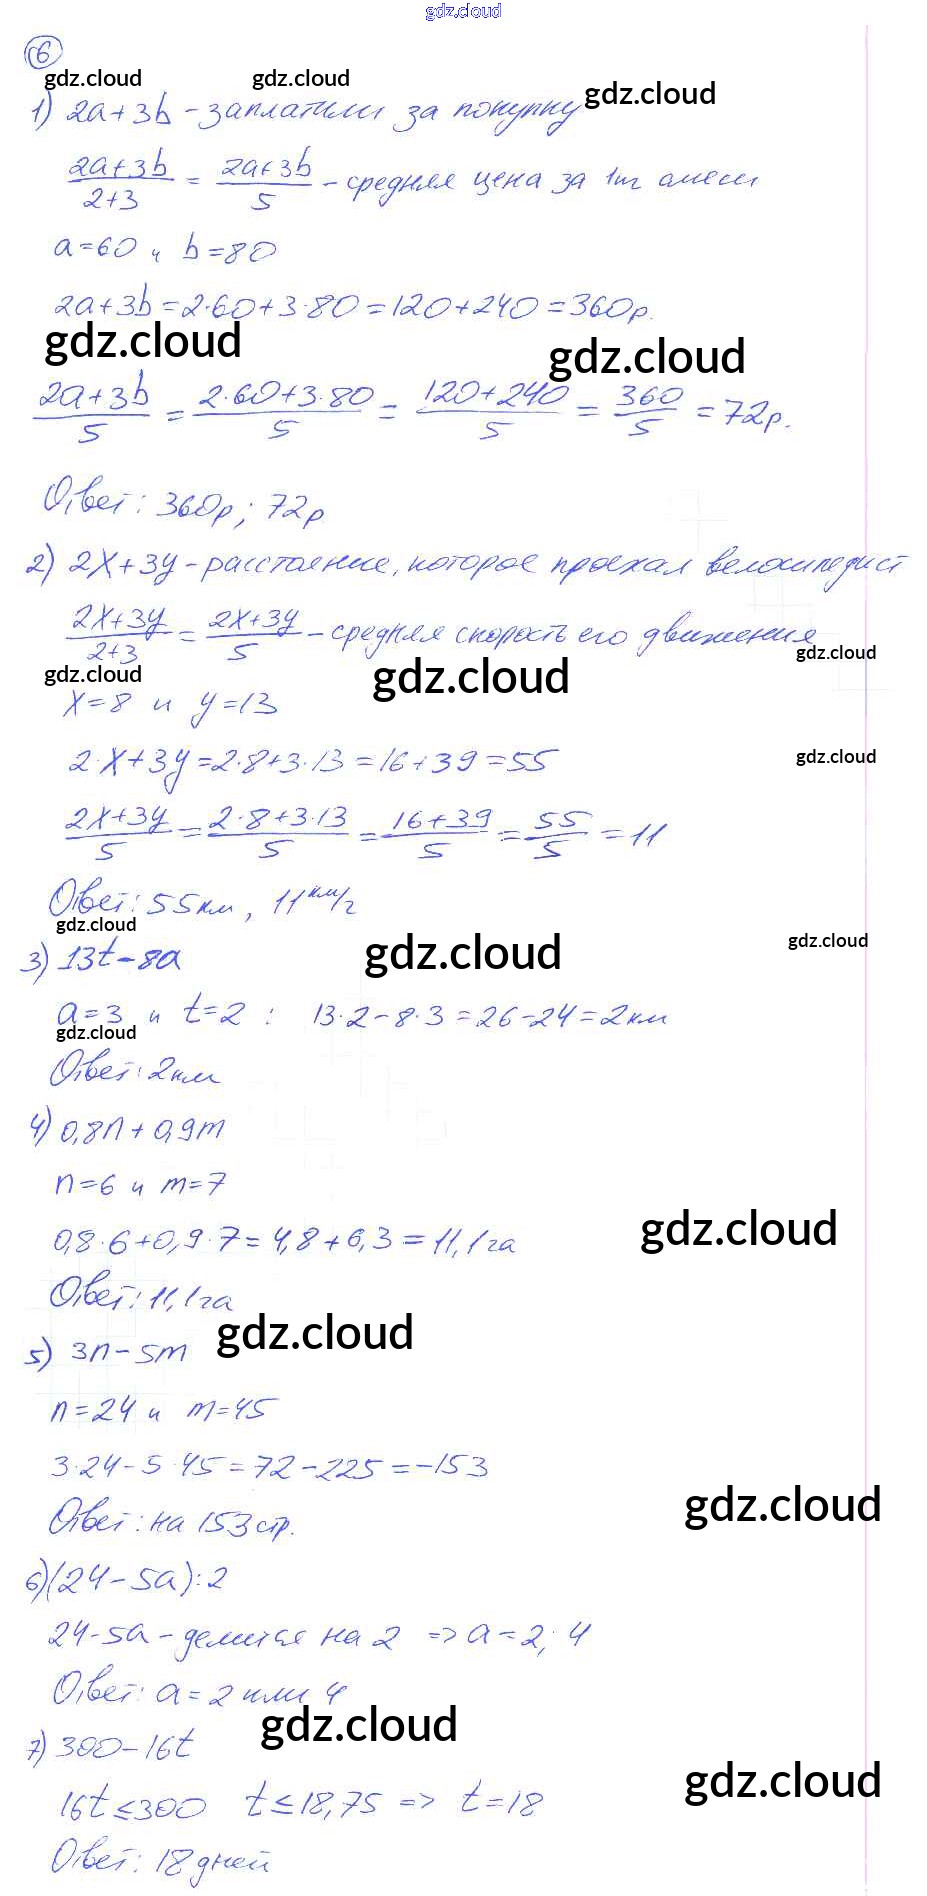 gdz.cloud
6
gdz.cloud gdz.cloud gdz.cloud
1) 2a+3b - заплатили за покупку
2a+3b/2+3 = 2a+3b/5 - средняя цена за 1т смеси
a=60 и b=80
2a+3b=2·60+3·80=120+240=360р.
gdz.cloud gdz.cloud
2a+3b/5 = 2·60+3·80/5 = 120+240/5 = 360/5 = 72р.
Ответ: 360р; 72р
2) 2x+3y - расстояние, которое проехал велосипедист
2x+3y/2+3 = 2x+3y/5 - средняя скорость его движения
gdz.cloud gdz.cloud gdz.cloud
x=8 и y=13
2·x+3y=2·8+3·13=16+39=55
gdz.cloud
2x+3y/5 = 2·8+3·13/5 = 16+39/5 = 55/5 = 11
Ответ: 55км, 11км/г
gdz.cloud gdz.cloud gdz.cloud
3) 13t-8a
a=3 и t=2 : 13·2-8·3=26-24=2км
gdz.cloud
Ответ: 2км
4) 0,8n+0,9m
n=6 и m=7
gdz.cloud
0,8·6+0,9·7=4,8+6,3=11,1га
Ответ: 11,1га
gdz.cloud
5) 3n-5m
n=24 и m=45
3·24-5·45=72-225=-153
gdz.cloud
Ответ: на 153стр.
6) (24-5a):2
24-5a - делится на 2 => a=2; 4
Ответ: a=2 или 4
gdz.cloud
7) 300-16t
gdz.cloud
16t≤300 t≤18,75 => t=18
Ответ: 18 дней